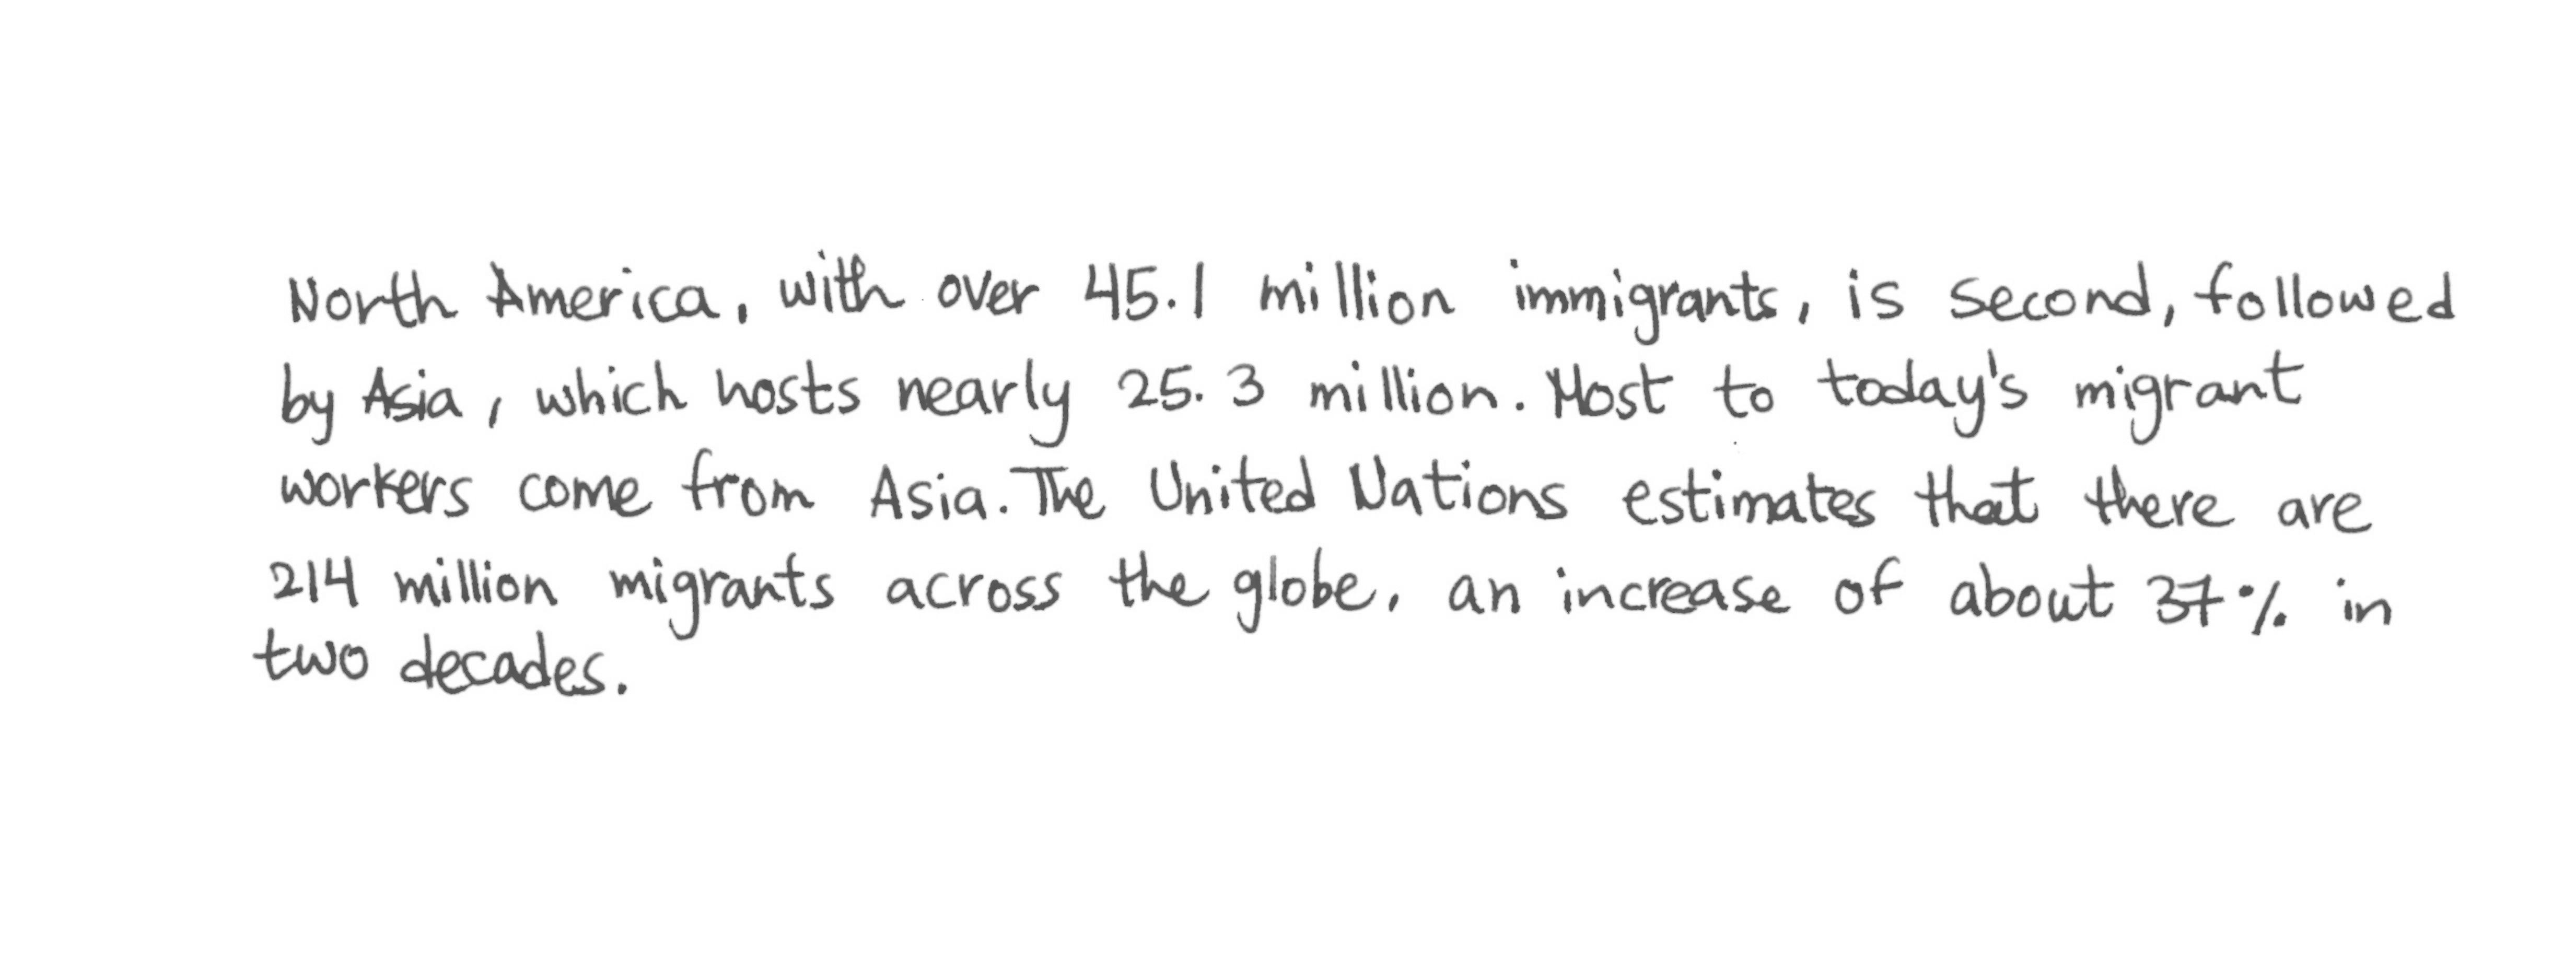 North America, with over 45.1 million immigrants, is second, followed
by Asia, which hosts nearly 25.3 million. Most to today's migrant
workers come from Asia. The United Nations estimates that there are
214 million migrants across the globe, an increase of about 37% in
two decades.